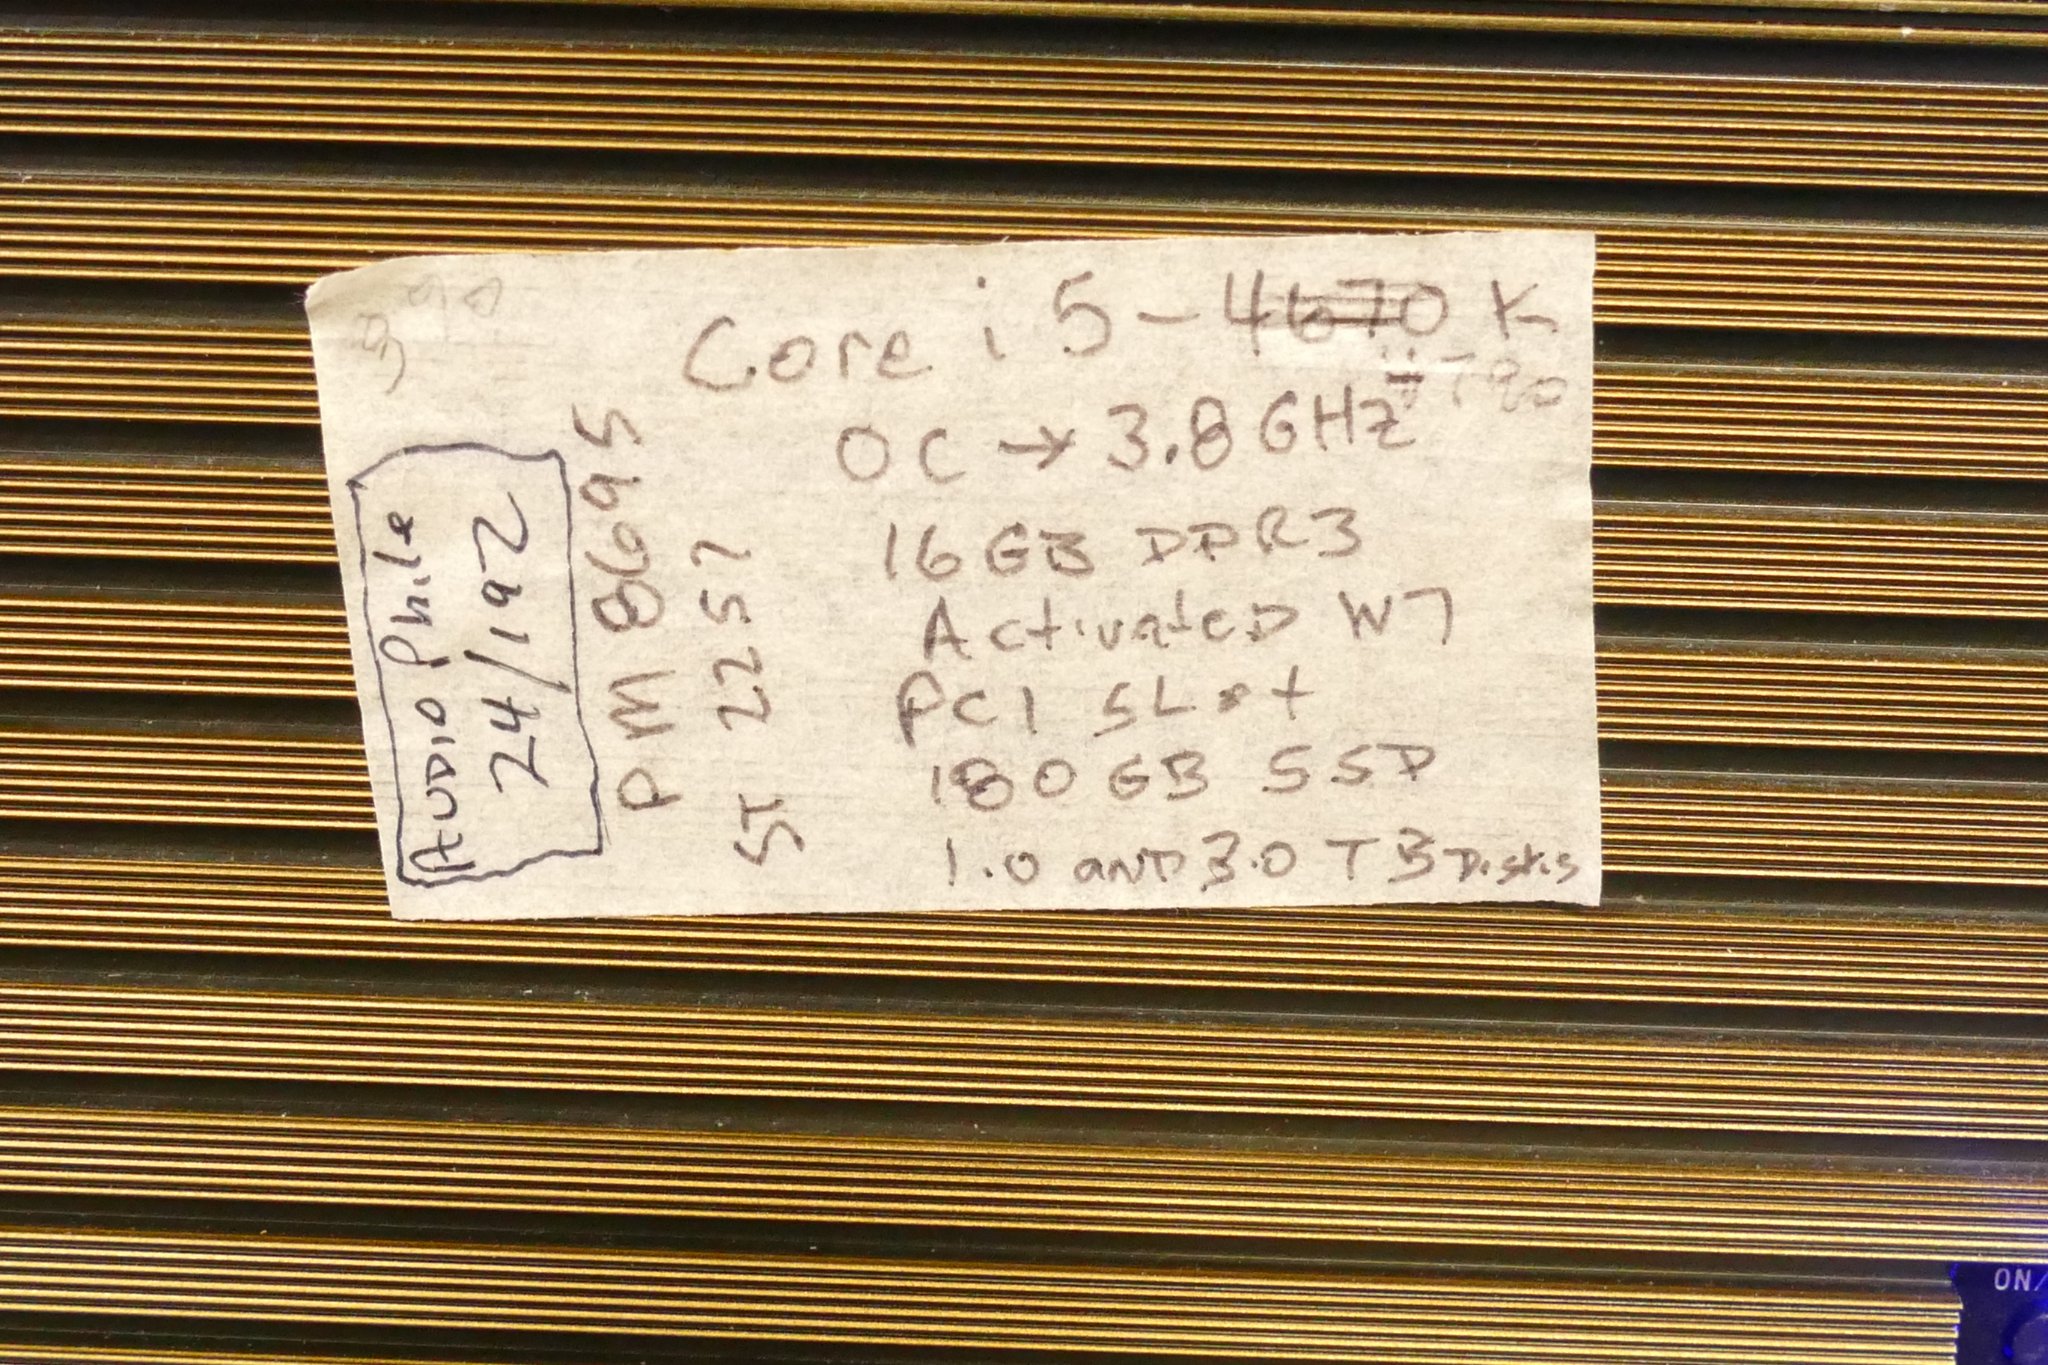 Core i5-4670K
4790
OC → 3.8 GHz
16 GB DDR3
ActivateD W7
PCI SLot
180 GB SSD
1.0 anD 3.0 TB Disks
AUDIO Phile
24/192
PM 8695
ST 2257
ON/